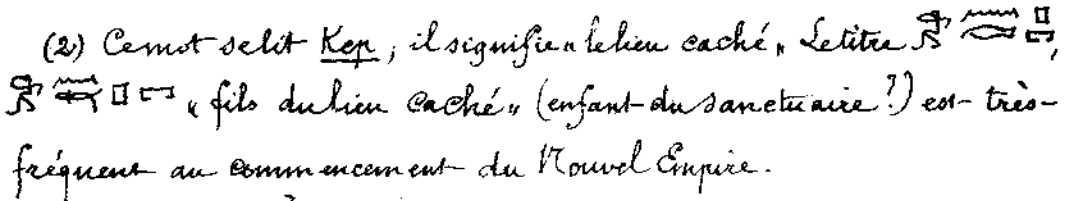 (2) Ce mot se lit Kep, il signifie « le lieu caché » Le titre ,
« fils du lieu caché » (enfant du sanctuaire?) est très-
fréquent au commencement du Nouvel Empire.